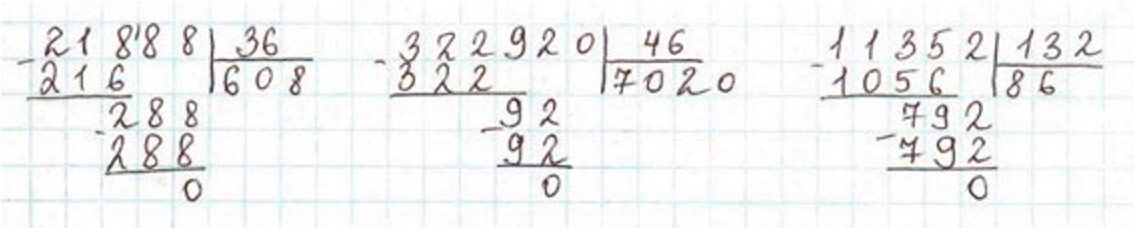 -21888|36
216 608
-288
288
0
-322920|46
322 7020
-92
92
0
-11352|132
1056 86
-792
792
0